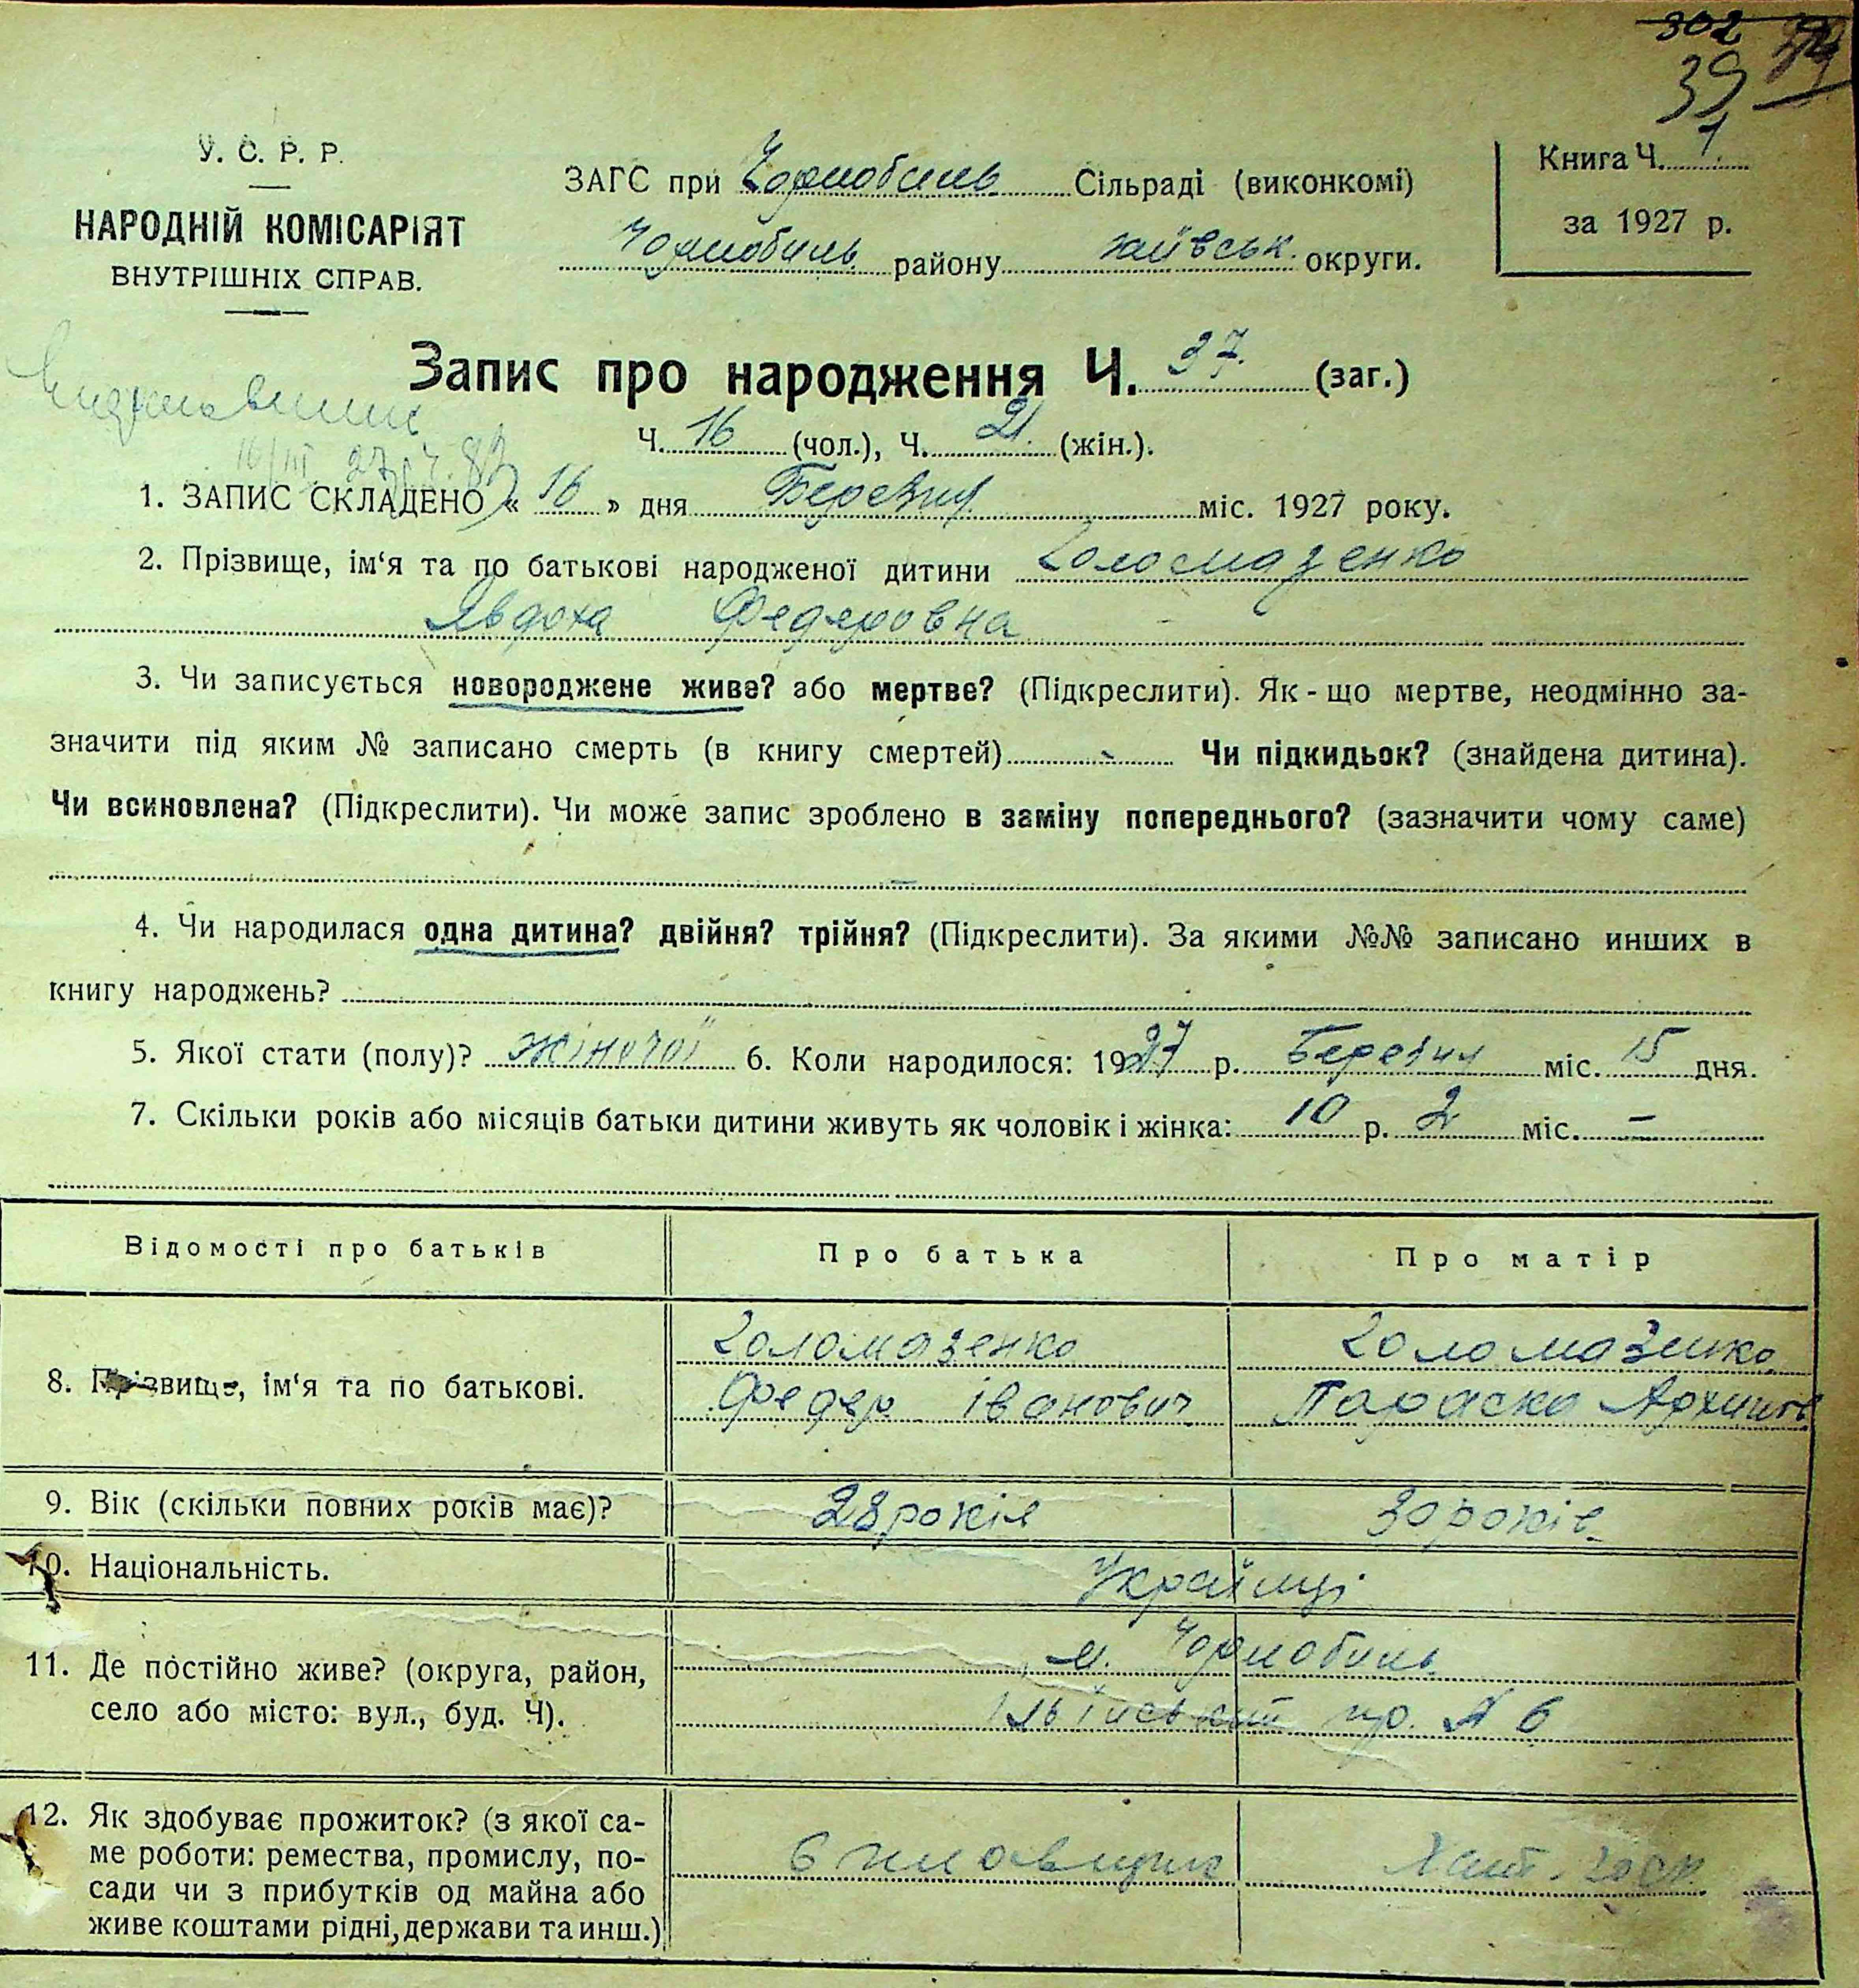 302
39
У. С. Р. Р.
НАРОДНІЙ КОМІСАРІЯТ
ВНУТРІШНІХ СПРАВ.
ЗАГС при Чорнобиль Сільраді (виконкомі)
Чорнобиль району київськ. округи.
Книга Ч. 1
за 1927 р.
Запис про народження Ч. 37. (заг.)
Ч. 16 (чол.), Ч. 21. (жін.).
16/III 27 р.
1. ЗАПИС СКЛАДЕНО « 16 » дня Березня міс. 1927 року.
2. Прізвище, ім‘я та по батькові народженої дитини Голомазенко
Явдоха Федеровна
3. Чи записується новороджене живе? або мертве? (Підкреслити). Як-що мертве, неодмінно за-
значити під яким № записано смерть (в книгу смертей) Чи підкидьок? (знайдена дитина).
Чи всиновлена? (Підкреслити). Чи може запис зроблено в заміну попереднього? (зазначити чому саме)
—
4. Чи народилася одна дитина? двійня? трійня? (Підкреслити). За якими №№ записано инших в
книгу народжень?
5. Якої стати (полу)? жіночої 6. Коли народилося: 1927 р. Березня міс. 15 дня.
7. Скільки років або місяців батьки дитини живуть як чоловік і жінка: 10 р. 2 міс. —
Відомості про батьків Про батька Про матір
Голомазенко Голомазенко
8. Прізвище, ім‘я та по батькові. Федер Іванович Параска
9. Вік (скільки повних років має)? 28 років 30 років
10. Національність. Українці
11. Де постійно живе? (округа, район, м. Чорнобиль
село або місто: вул., буд. Ч). пр. № 6
12. Як здобуває прожиток? (з якої са-
ме роботи: ремества, промислу, по-
сади чи з прибутків од майна або
живе коштами рідні, держави та инш.)